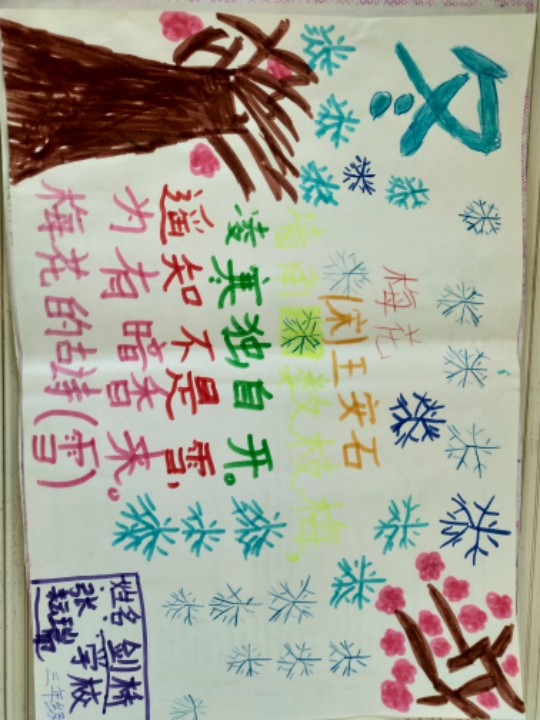 冬
梅花
(宋)王安石
墙角数枝梅、
凌寒独自开。
遥知不是雪,
为有暗香来。
梅花的古诗(雪)
姓名: 剑林
张 学校
二年级